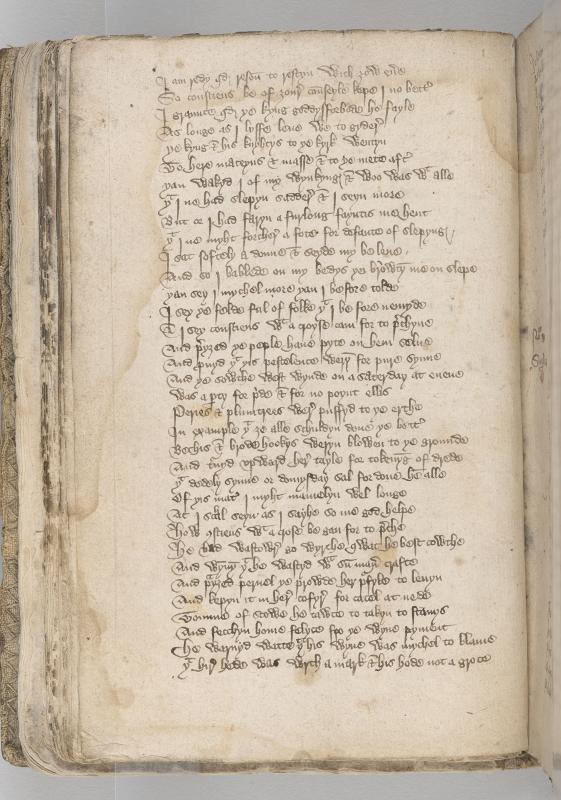 I am redy qd resoun to restyn with ȝow eu̓e
So constiens be of ȝour̓ conseyle kepe I no bett̓
I graunte qd ye kyng goddys forbede he fayle
As longe as I lyffe leue we to gyder̓
ye kyng & his knyhtys to ye kyrk wentyn
To here matyns & masse & to ye mete aft̓
yan wakyd I of my wynkyng & woo was wt alle
yt I ne had slepyn sadder̓ & I seyn more
But or I had faryn a furlong fayntis me hent
yt I ne myht forther̓ a fote for defaute of slepyng
I sat softely a doune & seyde my beleue
And so I babelede on my bedys yei browt me on slepe
yan sey I mychel more yan I before tolde
I sey ye felde ful of folke yt I be fore nemyde
& I sey constiens wt a croyse cam for to p̓chyne
And p̓yed ye peple haue pyte on hem selue
And p̓uyd yt yis pestolence wer̓ for pure synne
And ye sowthe west wynde on a saterday at euene
was a p̓ty for p̓de & for no poynt ellis
Peries & plumtrees wer̓ puffyd to ye erthe
In example yt ȝe alle schuldyn done ye bett̓
Bechis & brode hookys weryn blowen to ye grounde
And t̓nyd vpward her̓ tayle for tokenyg of drede
yt dedely synne or domysday sal for done hē alle
Of yis mat̓ I myht mamelyn wel longe
At I schal seyn as I sayhe so me god helpe
How ꝯstiens wt a crose be gan for to p̓che
He bad wastowr̓ go wyrche qwat he best cowthe
And wynn yt he wastyd wt sū man̓ crafte
And p̓yed pernel ye prowde her̓ p̓fyle to leuyn
And kepyn it in her̓ cofyr̓ for catel at nede
Tomme of stowe he tawte to takyn to stauys
And fecchyn home felyce fro ye wyne pyment
He warnyd watte yt his wyue was mychel to blame
yt hir̓ hede was wrth a mark & his hode not a grote